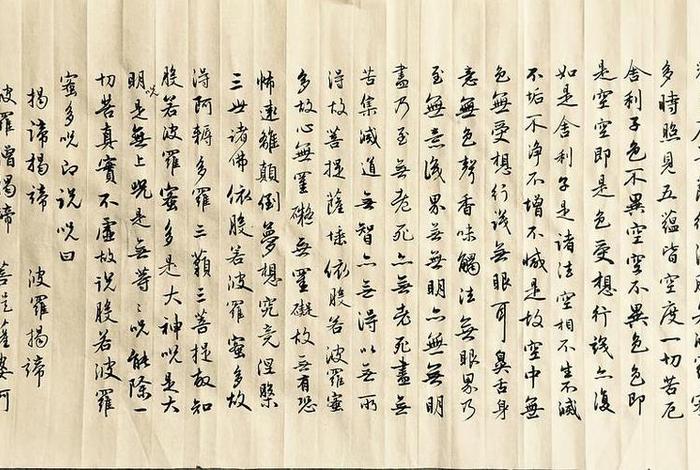 多時照見五蘊皆空度一切苦厄
舍利子色不異空空不異色色即
是空空即是色受想行識亦復
如是舍利子是諸法空相不生不滅
不垢不淨不增不減是故空中無
色無受想行識無眼耳鼻舌身
意無色聲香味觸法無眼界乃
至無意識界無無明亦無無明
盡乃至無老死亦無老死盡無
苦集滅道無智亦無得以無所
得故菩提薩埵依般若波羅蜜
多故心無罣礙無罣礙故無有恐
怖遠離顛倒夢想究竟涅槃
三世諸佛依般若波羅蜜多故
得阿耨多羅三藐三菩提故知
般若波羅蜜多是大神呪是大
明呪是無上呪是無等々呪能除一
切苦真實不虛故說般若波羅
蜜多呪即說呪曰
揭諦揭諦 波羅揭諦
波羅僧揭諦 菩提薩婆訶